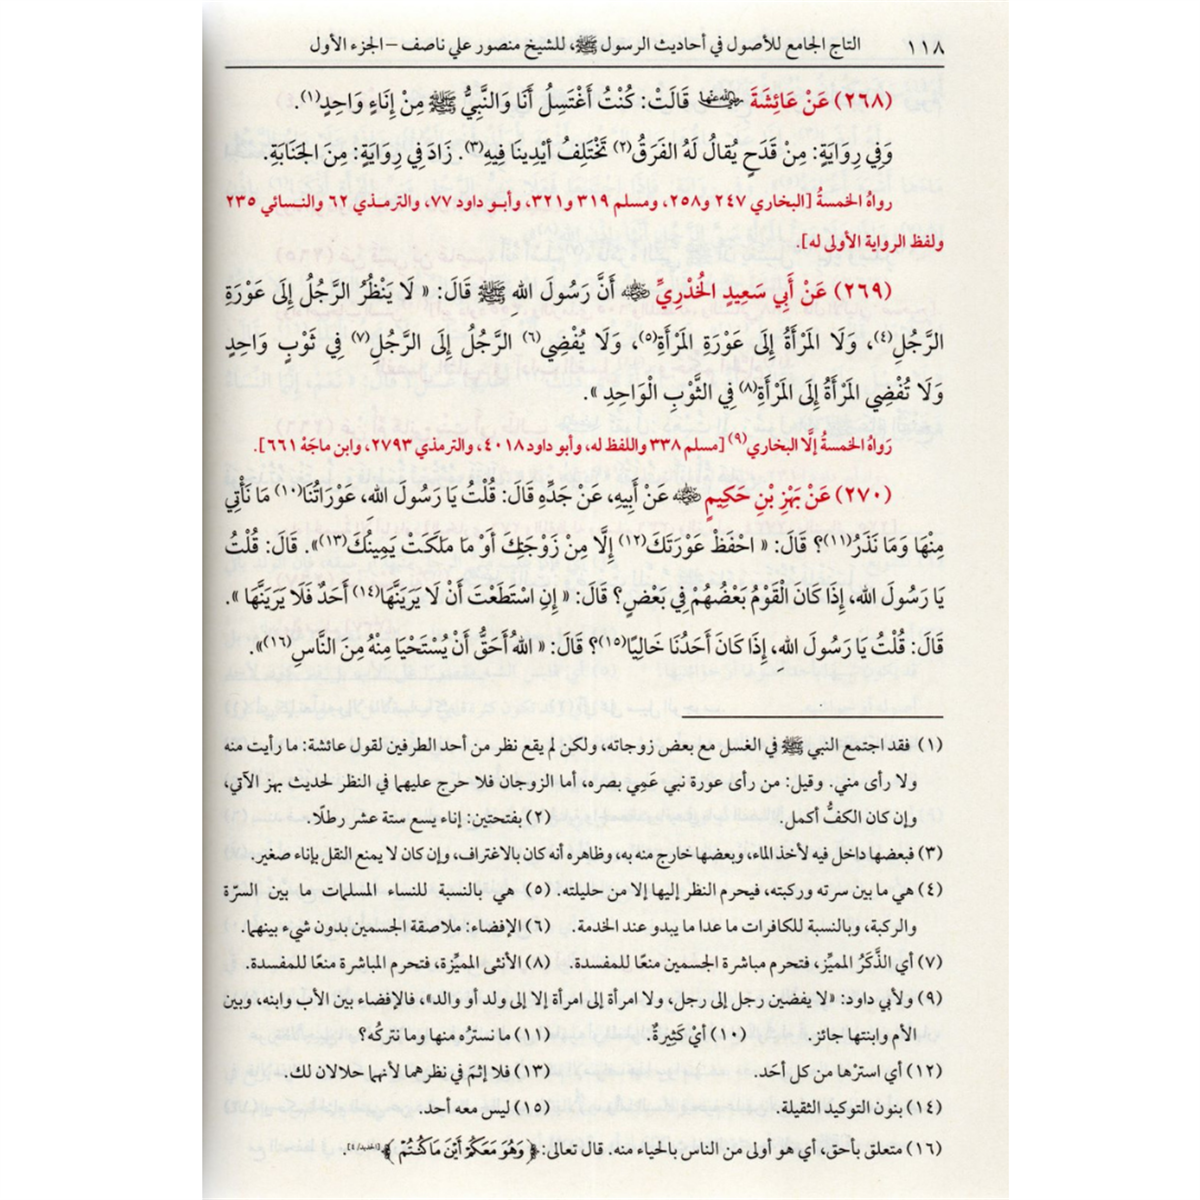 ١١٨ التاج الجامع للأصول في أحاديث الرسول ﷺ، للشيخ منصور علي ناصف – الجزء الأول
(٢٦٨) عَنْ عَائِشَةَ رضي الله عنها قَالَتْ: كُنْتُ أَغْتَسِلُ أَنَا وَالنَّبِيُّ ﷺ مِنْ إِنَاءٍ وَاحِدٍ(١).
وَفِي رِوَايَةٍ: مِنْ قَدَحٍ يُقالُ لَهُ الفَرَقُ(٢) تَخْتَلِفُ أَيْدِينَا فِيهِ(٣). زَادَ فِي رِوَايَةٍ: مِنَ الجَنَابَةِ.
رواهُ الخمسةُ [البخاري ٢٤٧ و٢٥٨، ومسلم ٣١٩ و٣٢١، وأبو داود ٧٧، والترمذي ٦٢ والنسائي ٢٣٥
ولفظ الرواية الأولى له].
(٢٦٩) عَنْ أَبِي سَعِيدٍ الخُدْرِيِّ رضي الله عنه أَنَّ رَسُولَ اللهِ ﷺ قَالَ: « لَا يَنْظُرُ الرَّجُلُ إِلَى عَوْرَةِ
الرَّجُلِ(٤)، وَلَا المَرْأَةُ إِلَى عَوْرَةِ المَرْأَةِ(٥)، وَلَا يُفْضِي(٦) الرَّجُلُ إِلَى الرَّجُلِ(٧) فِي ثَوْبٍ وَاحِدٍ
وَلَا تُفْضِي المَرْأَةُ إِلَى المَرْأَةِ(٨) فِي الثَّوْبِ الْوَاحِدِ ».
رَواهُ الخمسةُ إلَّا البخاري(٩) [مسلم ٣٣٨ واللفظ له، وأبو داود ٤٠١٨، والترمذي ٢٧٩٣، وابن ماجَهْ ٦٦١].
(٢٧٠) عَنْ بَهْزِ بْنِ حَكِيمٍ رضي الله عنه عَنْ أَبِيهِ، عَنْ جَدِّهِ قَالَ: قُلْتُ يَا رَسُولَ الله، عَوْرَاتُنَا(١٠) مَا نَأْتِي
مِنْهَا وَمَا نَذَرُ(١١)؟ قَالَ: « احْفَظْ عَوْرَتَكَ(١٢) إِلَّا مِنْ زَوْجَتِكَ أَوْ مَا مَلَكَتْ يَمِينُكَ(١٣)». قَالَ: قُلْتُ
يَا رَسُولَ الله، إِذَا كَانَ الْقَوْمُ بَعْضُهُمْ فِي بَعْضٍ؟ قَالَ: « إِنِ اسْتَطَعْتَ أَنْ لَا يَرَيَنَّهَا(١٤) أَحَدٌ فَلَا يَرَيَنَّهَا ».
قَالَ: قُلْتُ يَا رَسُولَ اللهِ، إِذَا كَانَ أَحَدُنَا خَالِيًا(١٥)؟ قَالَ: « اللهُ أَحَقُّ أَنْ يُسْتَحْيَا مِنْهُ مِنَ النَّاسِ(١٦)».
(١) فقد اجتمع النبي ﷺ في الغسل مع بعض زوجاته، ولكن لم يقع نظر من أحد الطرفين لقول عائشة: ما رأيت منه
ولا رأى مني. وقيل: من رأى عورة نبي عَمِي بصره، أما الزوجان فلا حرج عليهما في النظر لحديث بهز الآتي،
وإن كان الكفُّ أكمل. (٢) بفتحتين: إناء يسع ستة عشر رطلًا.
(٣) فبعضها داخل فيه لأخذ الماء، وبعضها خارج منه به، وظاهره أنه كان بالاغتراف، وإن كان لا يمنع النقل بإناء صغير.
(٤) هي ما بين سرته وركبته، فيحرم النظر إليها إلا من حليلته. (٥) هي بالنسبة للنساء المسلمات ما بين السرّة
والركبة، وبالنسبة للكافرات ما عدا ما يبدو عند الخدمة. (٦) الإفضاء: ملاصقة الجسمين بدون شيء بينهما.
(٧) أي الذَّكَرُ المميِّز، فتحرم مباشرة الجسمين منعًا للمفسدة. (٨) الأنثى المميِّزة، فتحرم المباشرة منعًا للمفسدة.
(٩) ولأبي داود: «لا يفضين رجل إلى رجل، ولا امرأة إلى امرأة إلا إلى ولد أو والد»، فالإفضاء بين الأب وابنه، وبين
الأم وابنتها جائز. (١٠) أيْ كَثِيرةٌ. (١١) ما نسترُه منها وما نتركُه؟
(١٢) أي استرْها من كل أحَد. (١٣) فلا إثمَ في نظرهما لأنهما حلالان لك.
(١٤) بنون التوكيد الثقيلة. (١٥) ليس معه أحد.
(١٦) متعلق بأحق، أي هو أولى من الناس بالحياء منه. قال تعالى: ﴿وَهُوَ مَعَكُمْ أَيْنَ مَا كُنتُمْ﴾ [الحديد/ ٤].